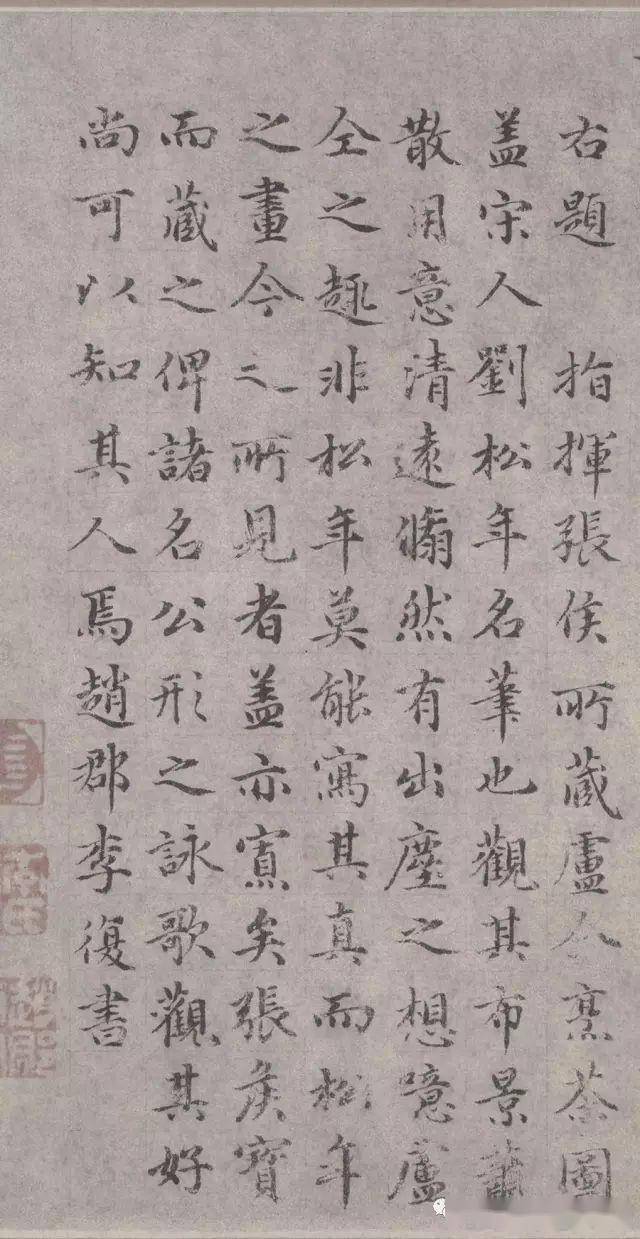 右題 指揮張侯所藏盧仝烹茶圖
盖宋人劉松年名筆也觀其布景蕭
散用意清遠翛然有出塵之想噫盧
仝之趣非松年莫能寫其真而松年
之畫今之所見者盖亦寡矣張侯寶
而藏之俾諸名公形之詠歌觀其好
尚可以知其人焉趙郡李復書